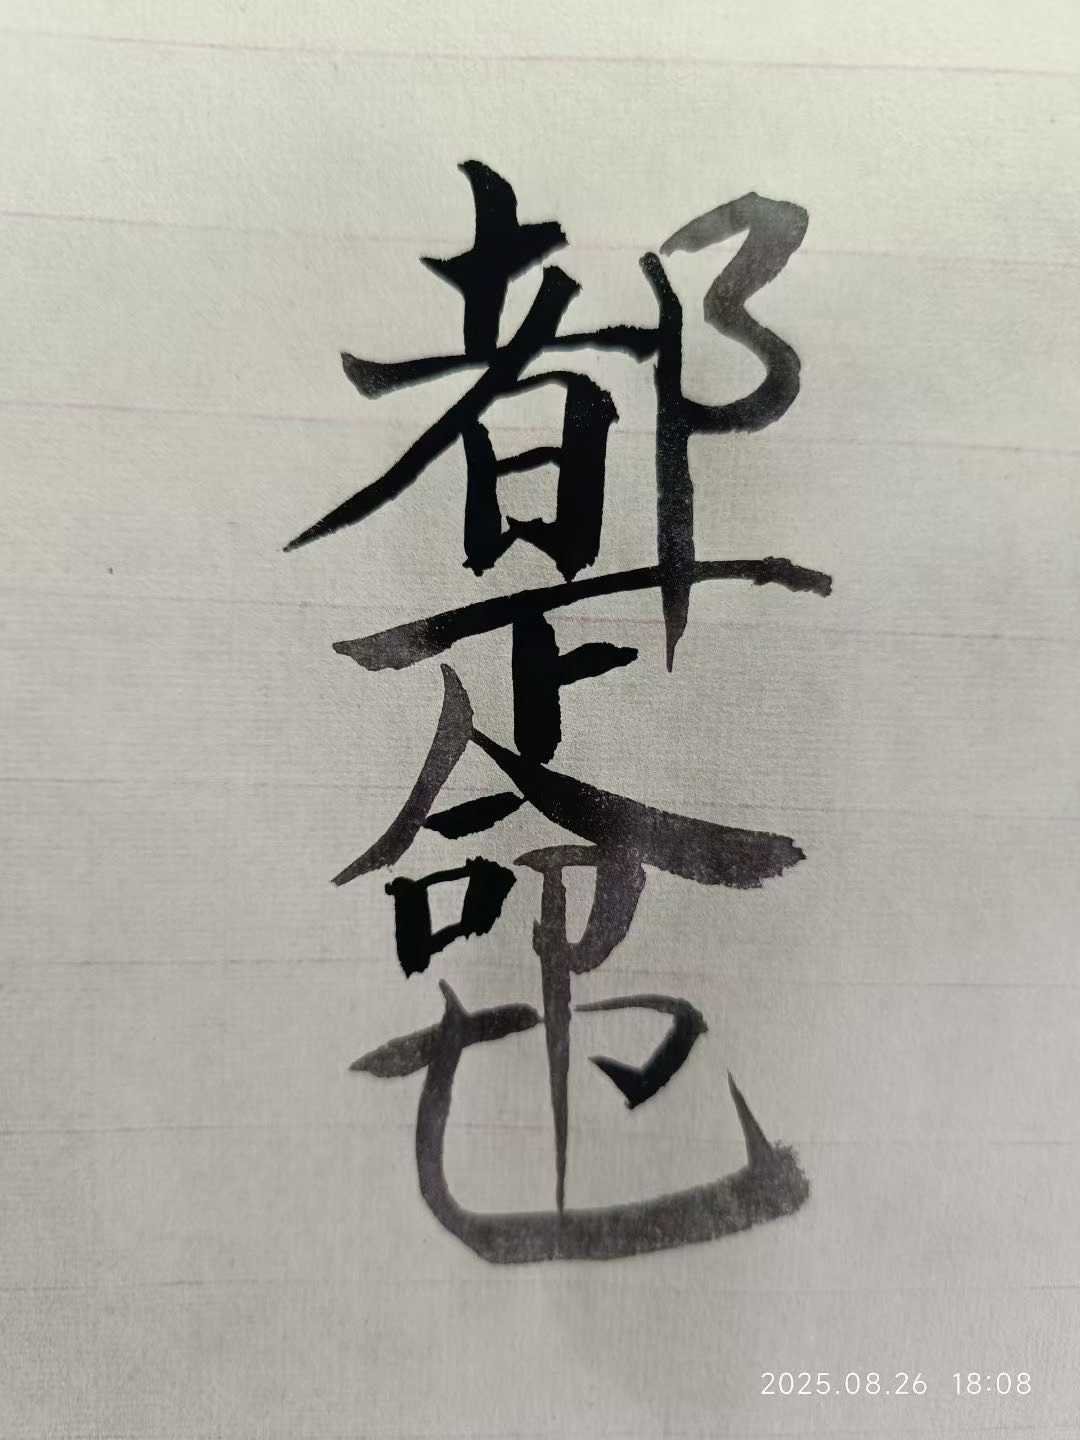 都下命也
2025.08.26 18:08